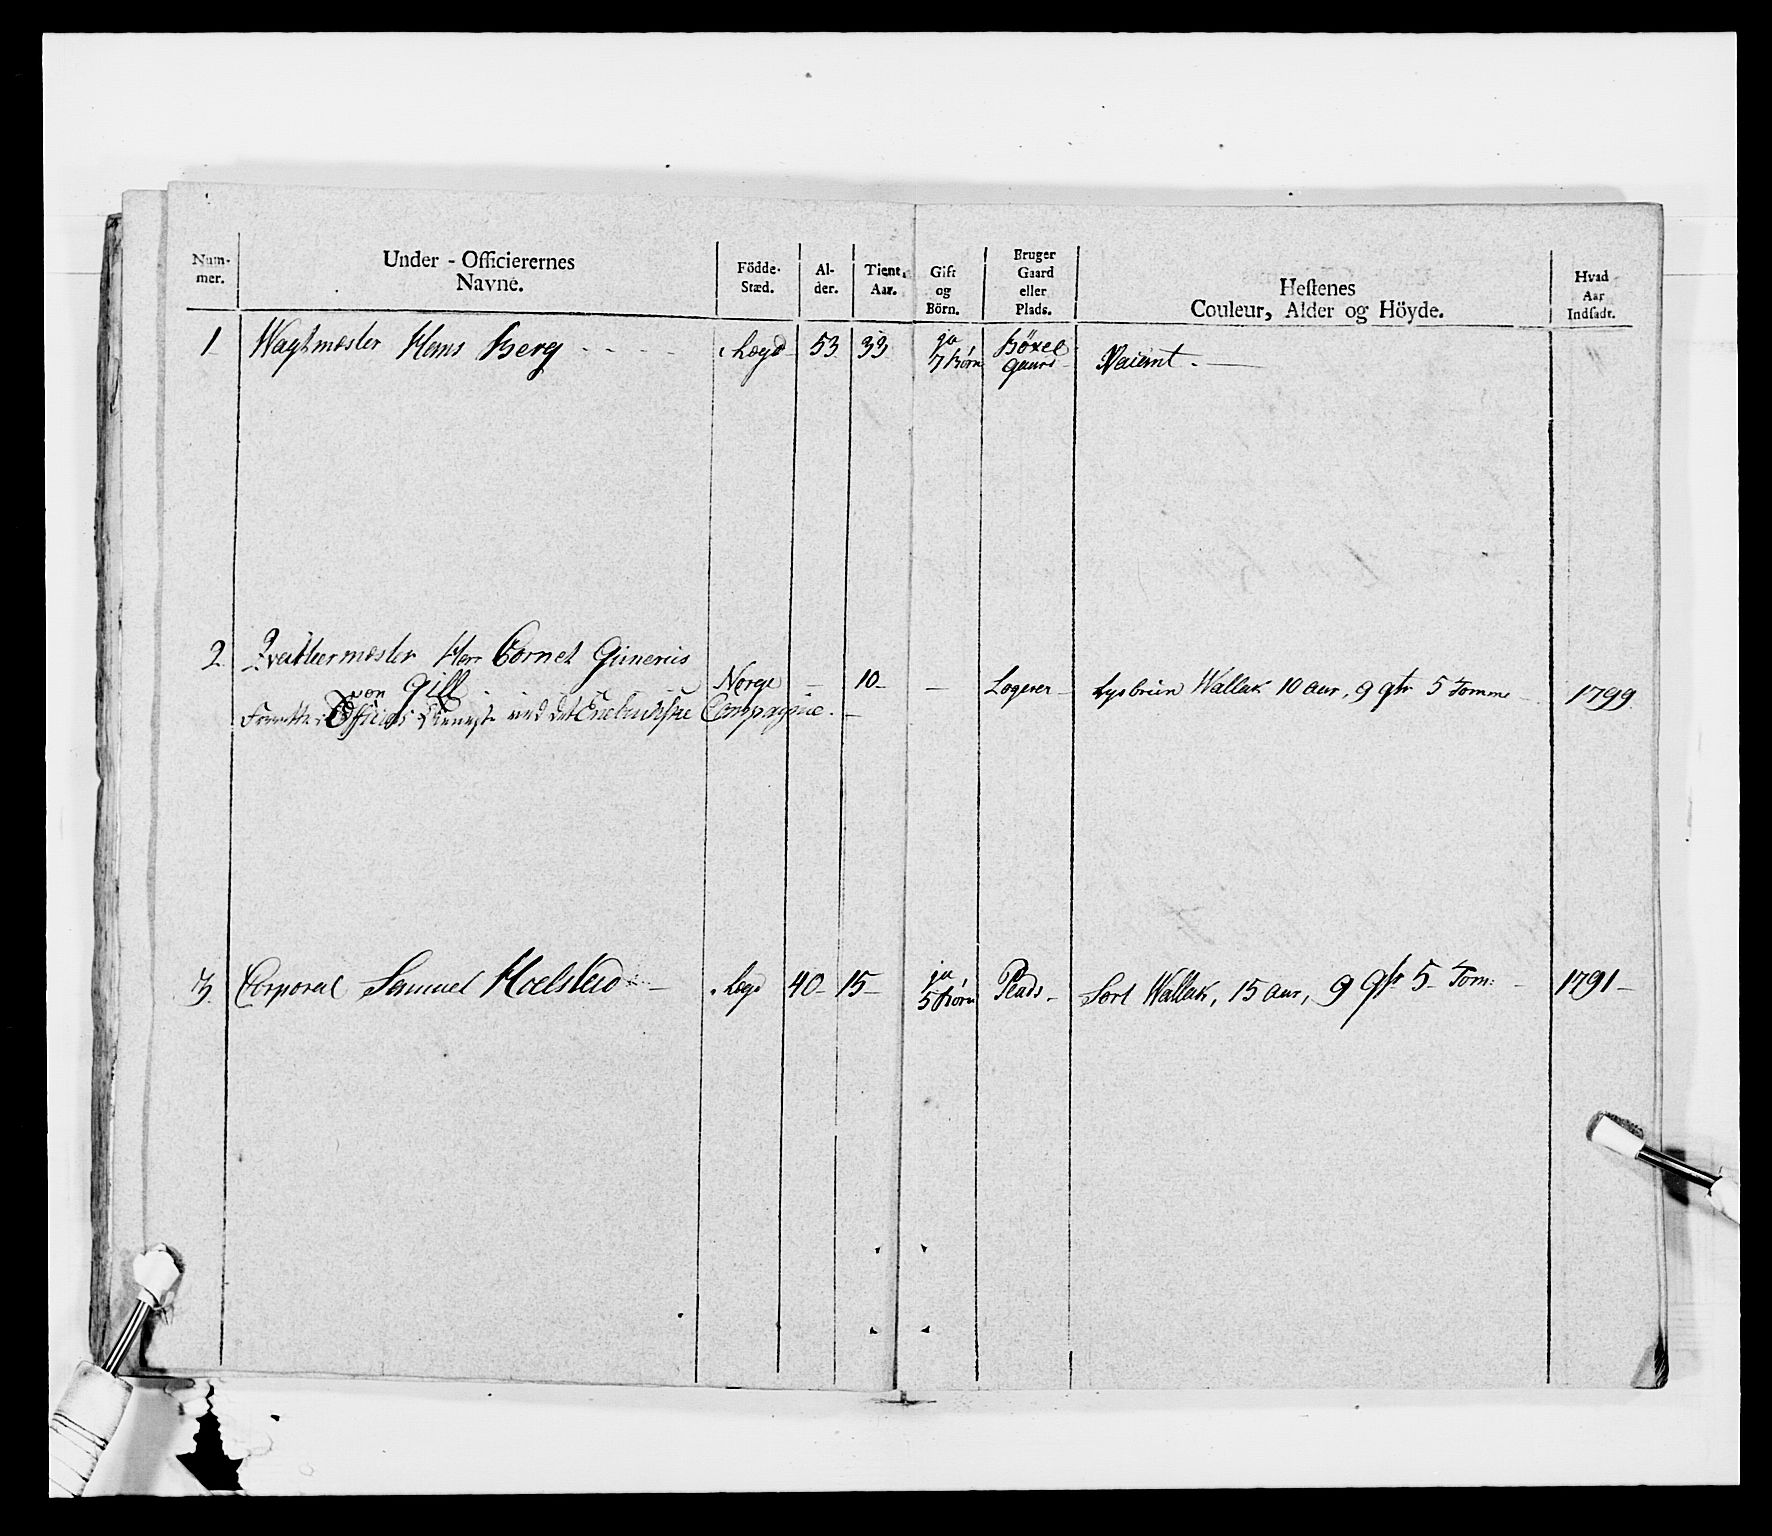 Num-
mer.
Under - Officierernes
Navne.
Födde-
Stæd.
Al-
der.
Tiente
Aar.
Gift
og
Börn.
Bruger
Gaard
eller
Plads.
Hestenes
Couleur, Alder og Höyde.
Hvad
Aar
Indsadt.
1 Wagtmæster Hans Berg - - - - 53 33 ja
7 Börn Böxel
gaard Vacant. -
2 Qvarteermæster Herr Cornet Gunerius
von Gill Norge - 10 - - Logerer - Lysbrun Wallak 10 aar, 9 qtr 5 Tomme - 1799
Forretter Officiers Tieneste ved det Compagnie. -
3 Corporal Samuel Hoelstad - 40 - 15 - ja
5 Börn Plads - Sort Wallak, 15 aar, 9 qtr 5 Tom: - 1791 -